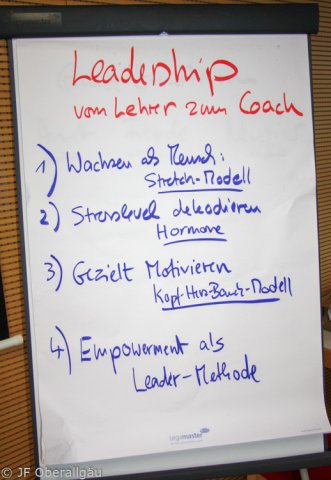 Leadership
vom Lehrer zum Coach
1) Wachsen als Mensch:
Stretch-Modell
2) Stresslevel dekodieren
Hormone
3) Gezielt Motivieren
Kopf-Herz-Bauch-Modell
4) Empowerment als
Leader-Methode
Legamaster
© JF Oberallgäu